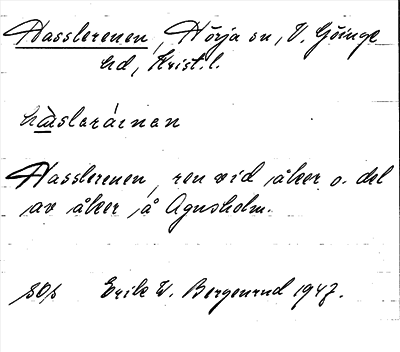 Hasslerenen, Hörja sn, V. Göinge
hd, Krist. l.
hàslaráenan
Hasslerenen, ren vid åker o. del
av åker å Agnsholm.
Erik W. Bergenrud 1947.